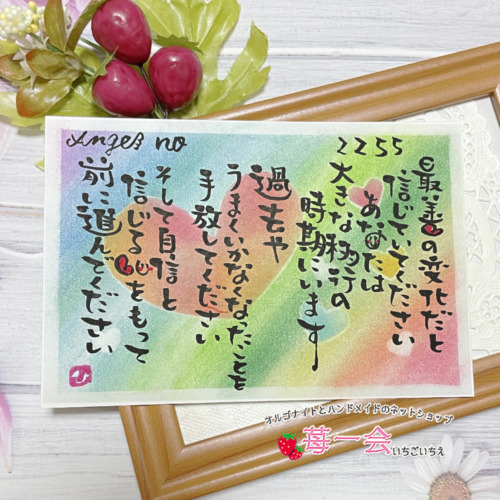 Angel no
2255
最善の変化だと
信じていてください
あなたは
大きな移行の
時期にいます
過去や
うまくいかなくなったことを
手放してください
そして自信と
信じる心をもって
前に進んでください
ひ
オルゴナイトとハンドメイドのネットショップ
苺一会
いちごいちえ